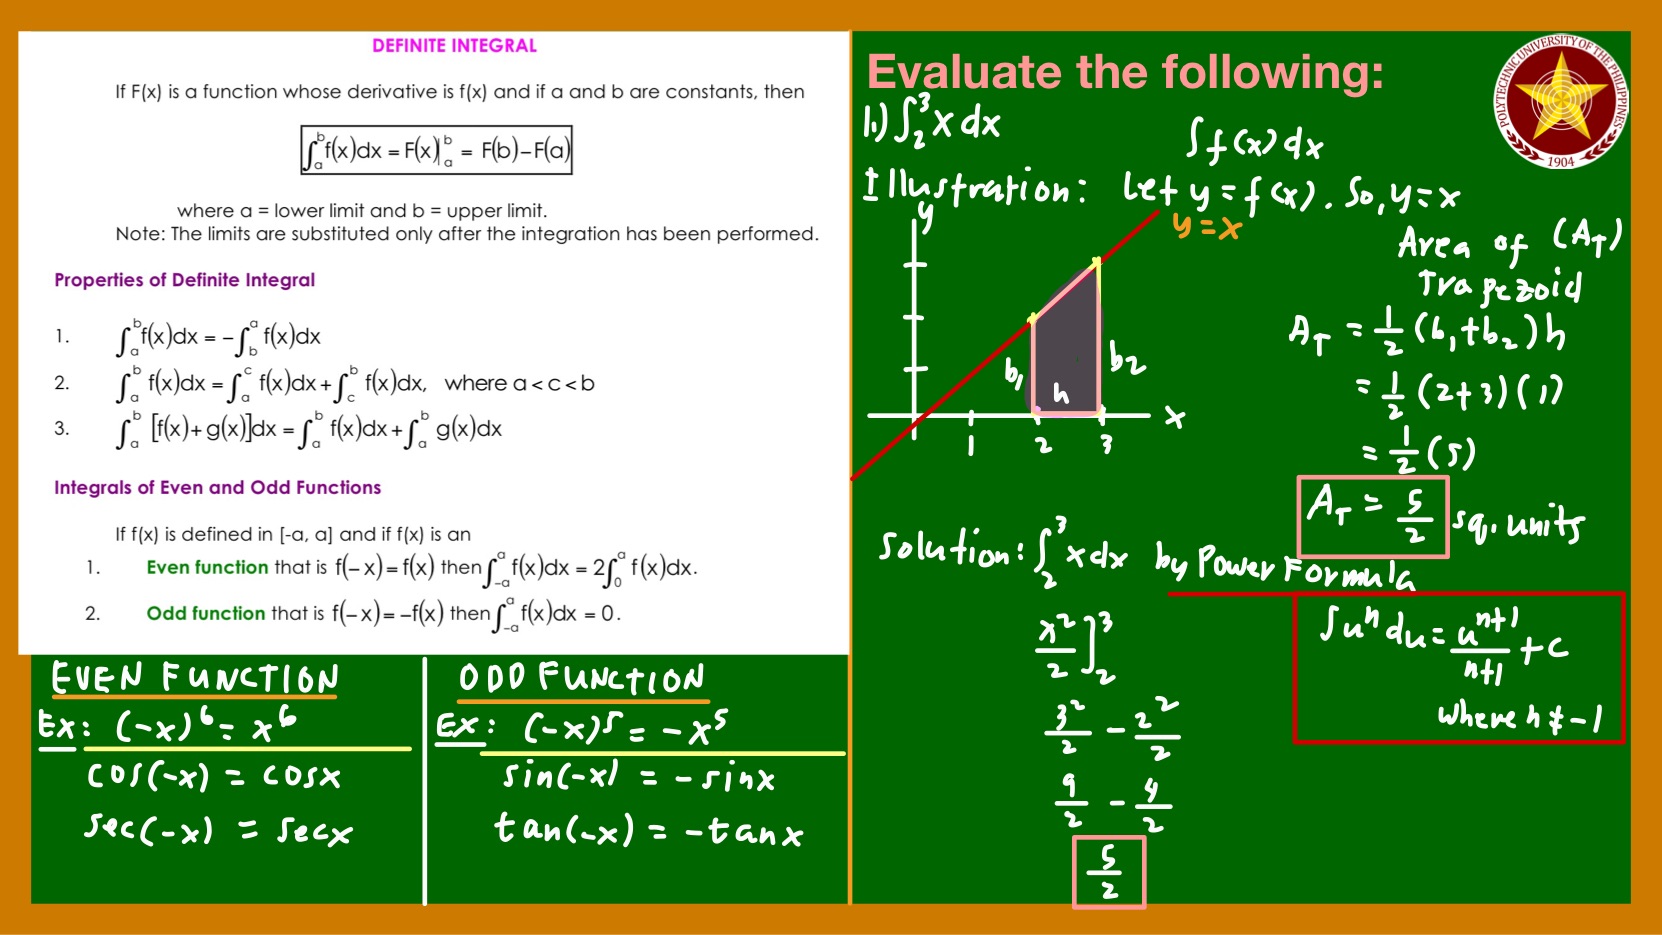 DEFINITE INTEGRAL
If F(x) is a function whose derivative is f(x) and if a and b are constants, then
∫ₐᵇ f(x)dx = F(x)|ₐᵇ = F(b)−F(a)
where a = lower limit and b = upper limit.
Note: The limits are substituted only after the integration has been performed.
Properties of Definite Integral
1. ∫ₐᵇ f(x)dx = −∫_b^a f(x)dx
2. ∫ₐᵇ f(x)dx = ∫ₐᶜ f(x)dx + ∫_c^b f(x)dx, where a < c < b
3. ∫ₐᵇ [f(x)+ g(x)]dx = ∫ₐᵇ f(x)dx + ∫ₐᵇ g(x)dx
Integrals of Even and Odd Functions
If f(x) is defined in [-a, a] and if f(x) is an
1. Even function that is f(−x) = f(x) then ∫_{-a}^{a} f(x)dx = 2∫₀ᵃ f(x)dx.
2. Odd function that is f(−x) = −f(x) then ∫_{-a}^{a} f(x)dx = 0.
EVEN FUNCTION
Ex: (-x)⁶ = x⁶
cos(-x) = cosx
sec(-x) = secx
ODD FUNCTION
Ex: (-x)⁵ = -x⁵
sin(-x) = - sinx
tan(-x) = -tanx
Evaluate the following:
POLYTECHNIC UNIVERSITY OF THE PHILIPPINES
1904
1.) ∫₂³ x dx
∫f(x) dx
Illustration: Let y = f(x). So, y = x
y
y = x
b₁
h
b₂
x
1 2 3
Area of (A_T)
Trapezoid
A_T = 1/2 (b₁+b₂)h
= 1/2 (2+3)(1)
= 1/2 (5)
A_T = 5/2 sq. units
Solution: ∫₂³ x dx by Power Formula
∫uⁿ du = uⁿ⁺¹/n+1 + c
where n ≠ -1
x²/2 ]₂³
3²/2 - 2²/2
9/2 - 4/2
5/2